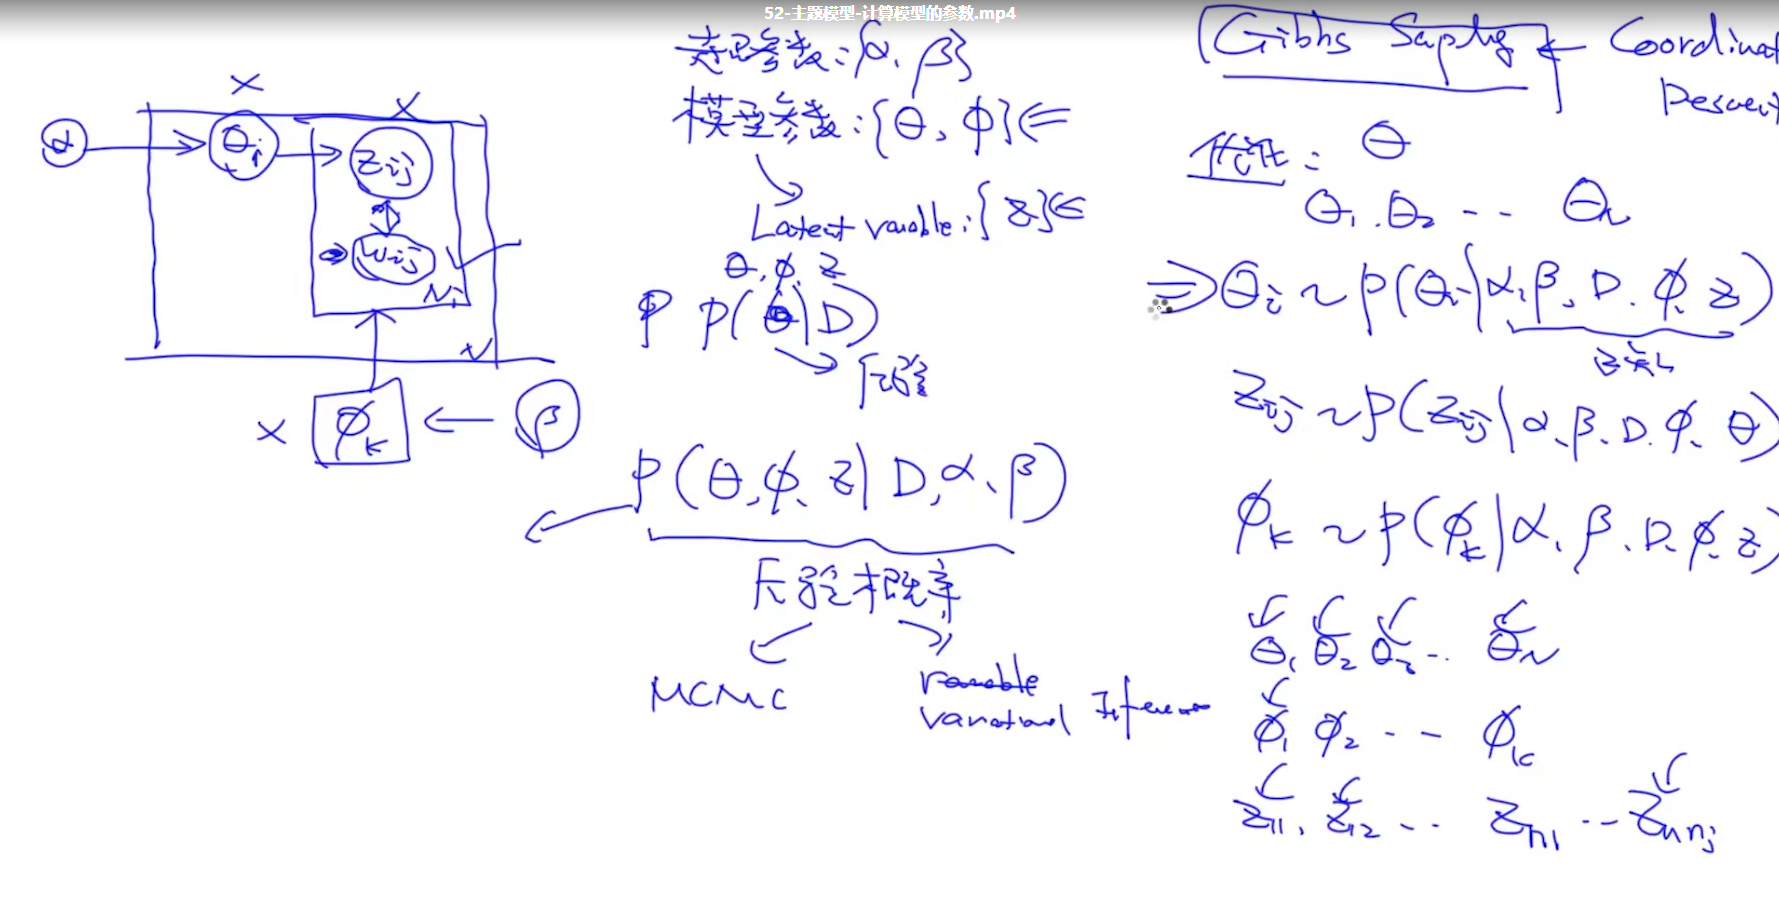 52-主题模型-计算模型的参数.mp4
α
θi
zij
wij
Ni
N
φk
β
超参数:{α, β}
模型参数:{θ, φ}
Latent variable:{z}
θ, φ, z
P P(θ|D)
后验
P(θ, φ, z|D, α, β)
后验概率
MCMC
variable
variational Inference
Gibbs Sapling ← Coordinat
Descent
优化: θ
θ1. θ2 -- θN
⇒ θi ~ P(θi|α, β, D. φ, z)
已知
zij ~ P(zij|α, β, D. φ, θ)
φk ~ P(φk|α, β, D, φ, z)
θ1 θ2 θi -- θN
φ1 φ2 --- φk
z11, z12 --- zn1 --- znnj